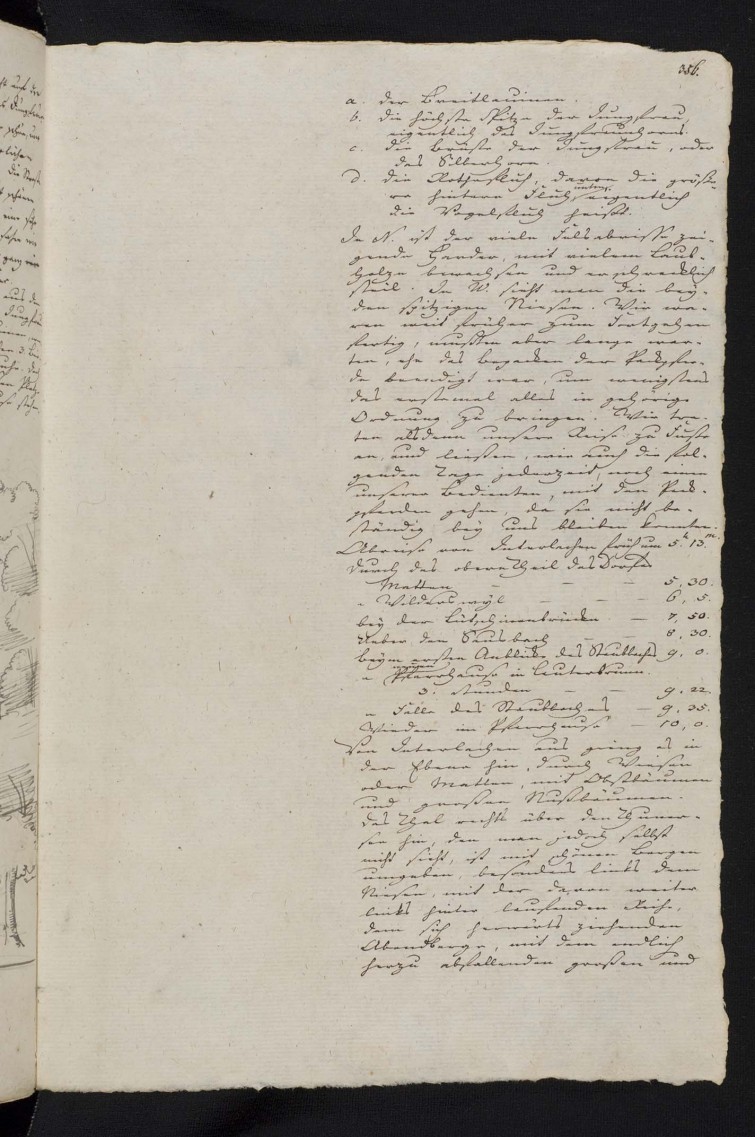 386.
a. der Breitlauinen.
b. die höchste Spitze der Jungfrau,
eigentlich das Jungfrauhorn.
c. die Brüste der Jungfrau, oder
das Silberhorn.
d. die Rothefluh, davon die größe-
re hintere Fluh, unten eigentlich
die Vogelfluh heißt.
In N. ist der viele Felsabrisse zei-
gende Harder, mit vielem Laub-
holze bewachsen und erschrecklich
steil. In W. sieht man die bey-
den spitzigen Niesen. Wir wa-
ren weit früher zum Fortgehen
fertig, mußten aber lange war-
ten, ehe das Bepacken der Packpfer-
de beendigt war, um wenigstens
das erstemal alles in gehörige
Ordnung zu bringen. Wir tra-
ten alsdenn unsere Reise zu Fuße
an, und ließen, wie auch die fol-
genden Tage jederzeit, noch einen
unserer Bedienten, mit den Pack-
pferden gehen, da sie nicht be-
ständig bey uns bleiben konnten.
Abreise von Interlachen früh um 5.h 13.m
durch das obere Theil des Dorfes
Matten — — — 5, 30.
" Wilderswyl — — — 6, 5.
bey der Lütschinenbrücke — 7, 50.
Ueber den Sausbach — — 8, 30.
beym ersten Anblicke des Staubbachs 9, 0.
" Pfarrhause in Lauterbrunn.
3. Stunden — — 9. 22.
" Falle des Staubbaches — 9, 35.
Wieder im Pfarrhause — 10, 0.
Von Interlachen aus ging es in
der Ebene hin, durch Wiesen
oder Matten, mit Obstbäumen
und großen Nußbäumen.
Das Thal rechts über den Thuner-
see hin, den man jedoch selbst
nicht sieht, ist mit schönen Bergen
umgeben, besonders links dem
Niesen, mit der davon weiter
links hinter laufenden Reihe,
dem sich herwärts ziehenden
Abendberge, mit dem endlich
herzu abfallenden großen und